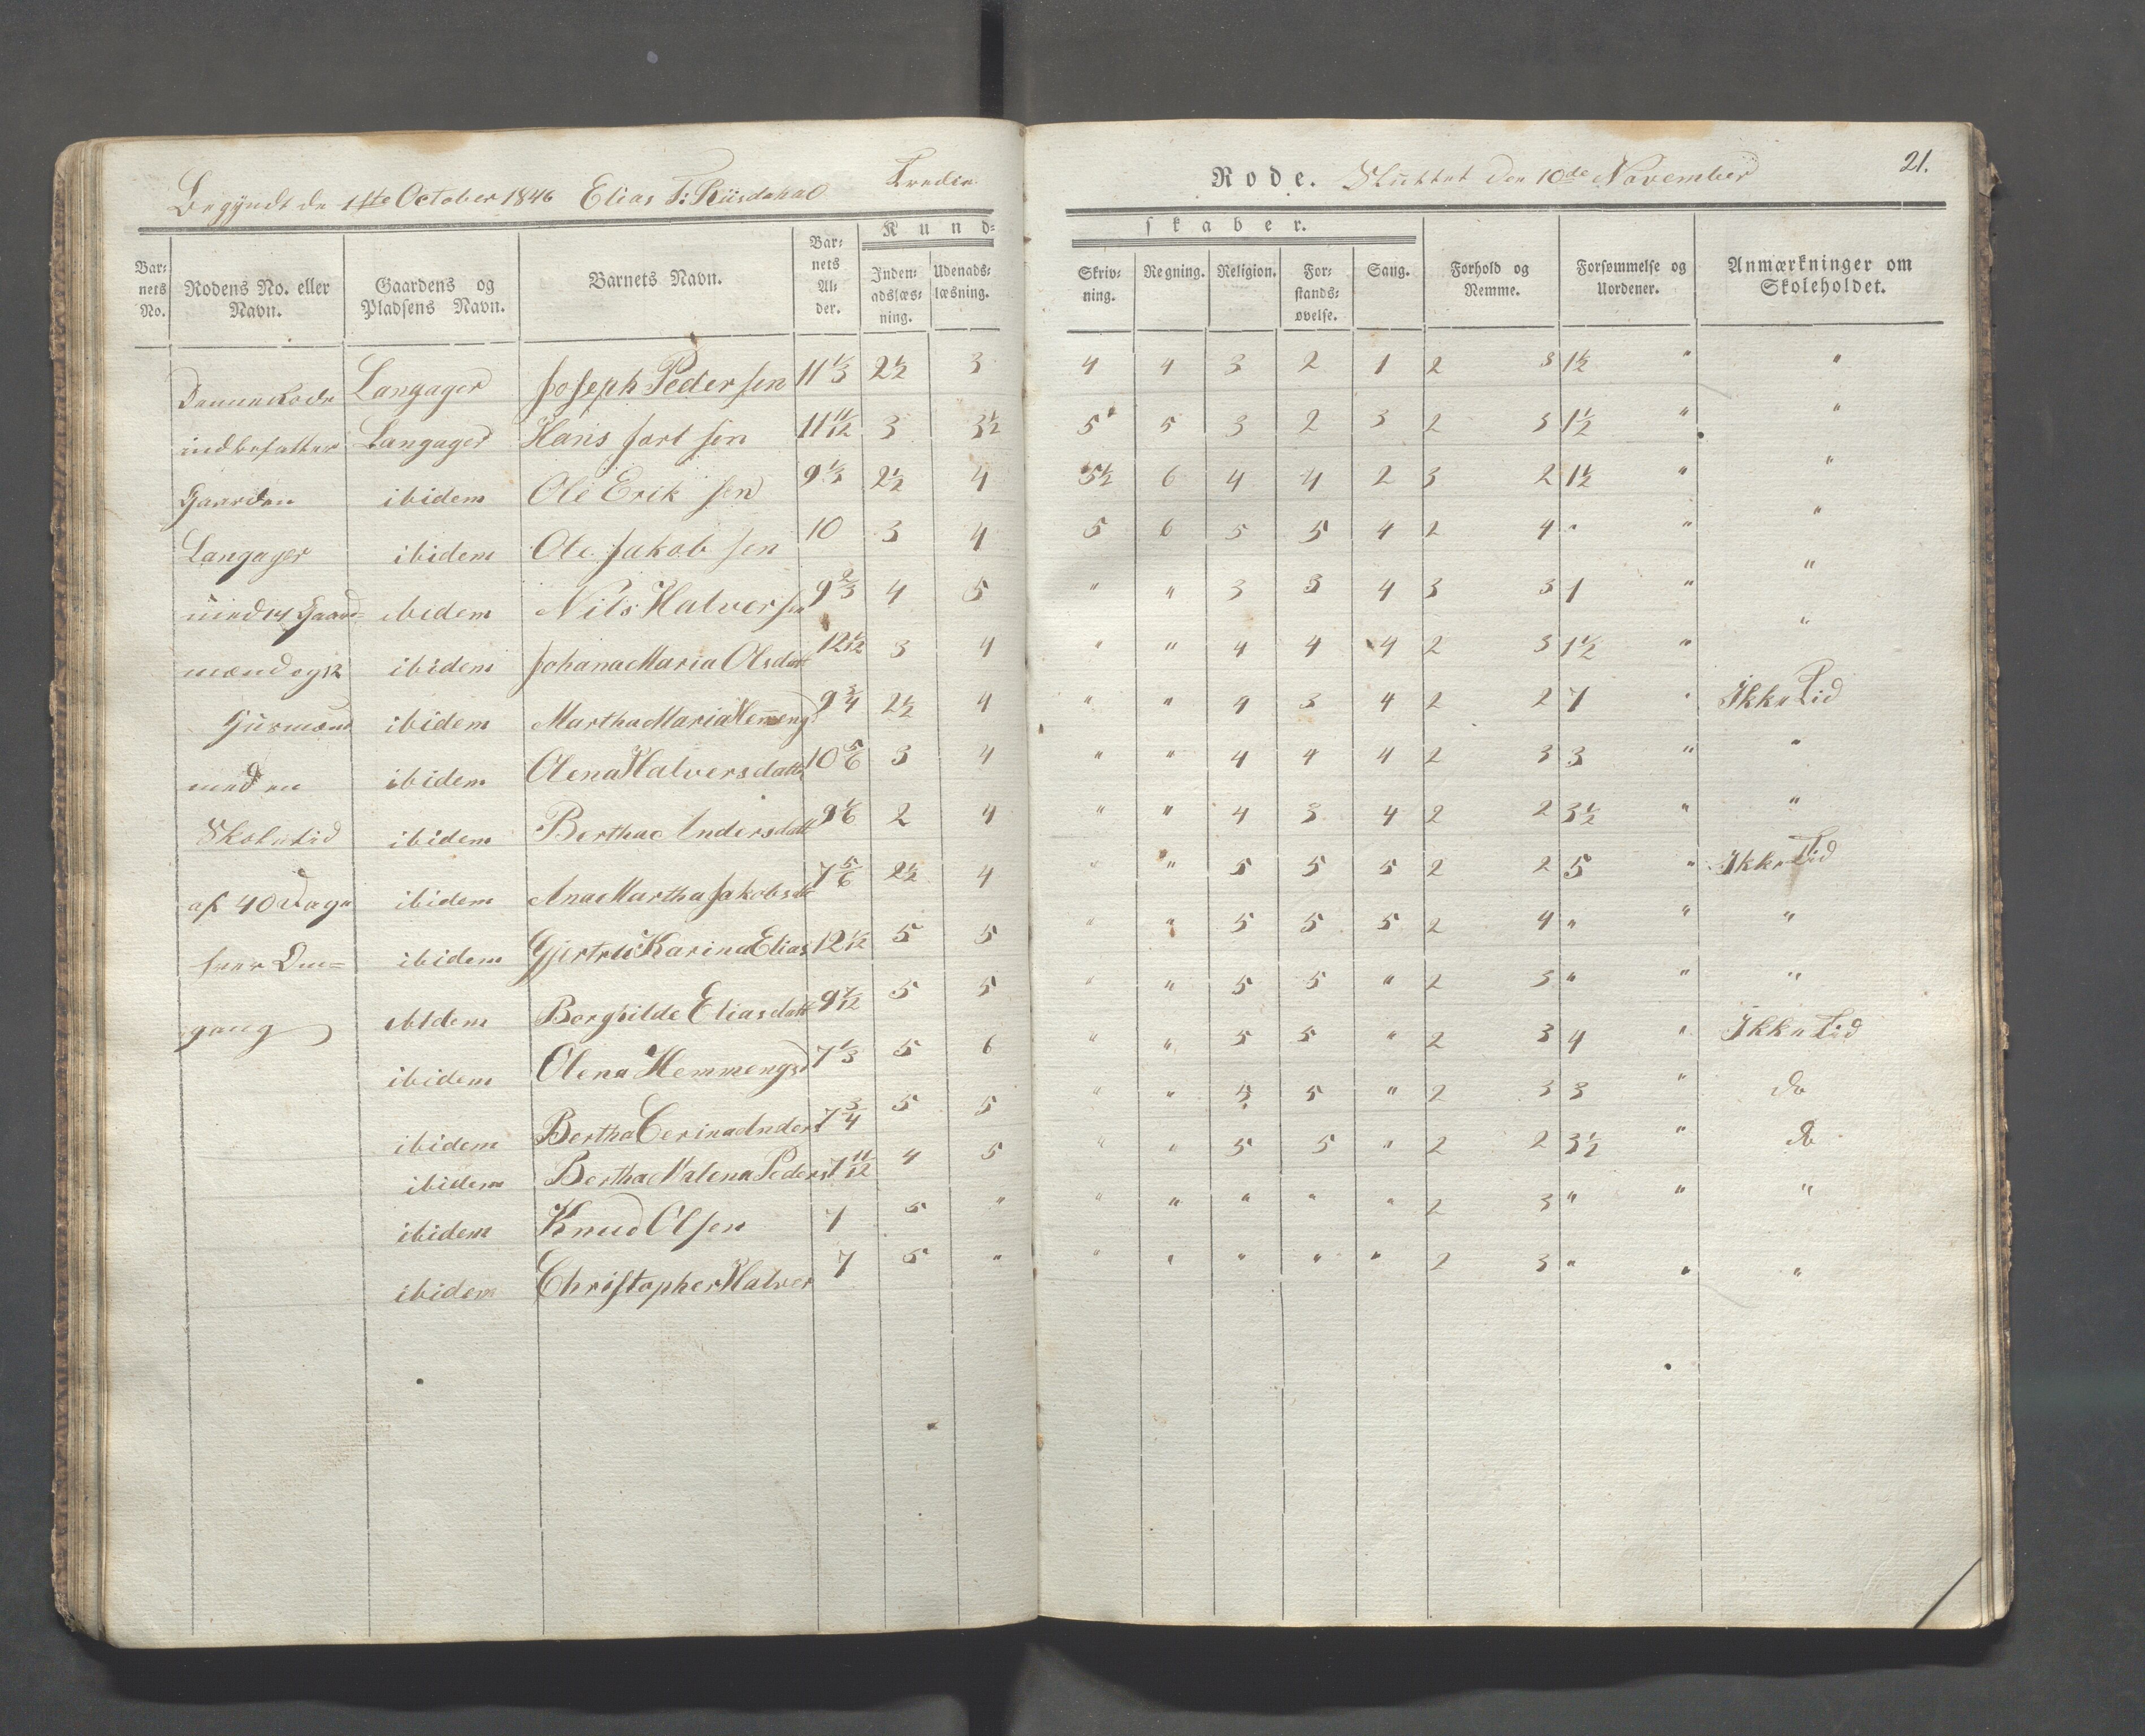 Begyndt de 1ste October 1846 Elias T: Riisdahal Tredie
Rode. Sluttet den 10de November 21.
Kund-
skaber.
Barnets No. Rodens No. eller Navn. Gaardens og Pladsens Navn. Barnets Navn. Barnets Alder. Indenadslæsning. Udenadslæsning. Skrivning. Regning. Religion. Forstandsøvelse. Sang. Forhold og Nemme. Forsømmelse og Uordener. Anmærkninger om Skoleholdet.
Denne Rode Langager Joseph Pedersen 11 1/3 2 1/2 3 4 4 3 2 1 2 3 1 1/2 " "
indbefatter Langager Hans Jortsen 11 11/12 3 3 1/2 5 5 3 2 3 2 3 1 1/2 " "
Gaarden ibidem Ole Eriksen 9 1/3 2 1/2 4 5 1/2 6 4 4 2 3 2 1 1/2 " "
Langager ibidem Ole Jakobsen 10 3 4 5 6 5 5 4 2 4 " " "
med 14 Gaard= ibidem Nils Halversen 9 2/3 4 5 " " 3 3 4 3 3 1 " "
mænd og 12 ibidem Johana Maria Olsdatt 12 1/12 3 4 " " 4 4 4 2 3 1 1/2 " "
Huusmænd ibidem Martha Maria Hemengsd 9 3/4 2 1/2 4 " " 4 3 4 2 2 7 " Ikke Tid
med en ibidem Olena Halversdatt 10 5/6 3 4 " " 4 4 4 2 3 3 " "
Skoletid ibidem Bertha Andersdatt 9 1/6 2 4 " " 4 3 4 2 2 3 1/2 " "
af 40 Dage ibidem Ana Martha Jakobsdt 7 5/6 2 1/2 4 " " 5 5 5 2 2 5 " Ikke Tid
hver Om= ibidem Gjertru Karina Elias 12 1/12 5 5 " " 5 5 5 2 4 " " "
gang ibidem Borghilde Eliasdatt 9 7/12 5 5 " " 5 5 " 2 3 " " "
ibidem Olena Hemmengsd 7 1/3 5 6 " " 5 5 " 2 3 4 " Ikke Tid
ibidem Bertha Cerina Anders 7 3/4 5 5 " " 5 5 " 2 3 3 " do
ibidem Bertha Malena Peders 7 11/12 4 5 " " 5 5 " 2 2 3 1/2 " do
ibidem Knud Olsen 7 5 " " " " " " 2 3 " " "
ibidem Christopher Halver 7 5 " " " " " " 2 3 " " "